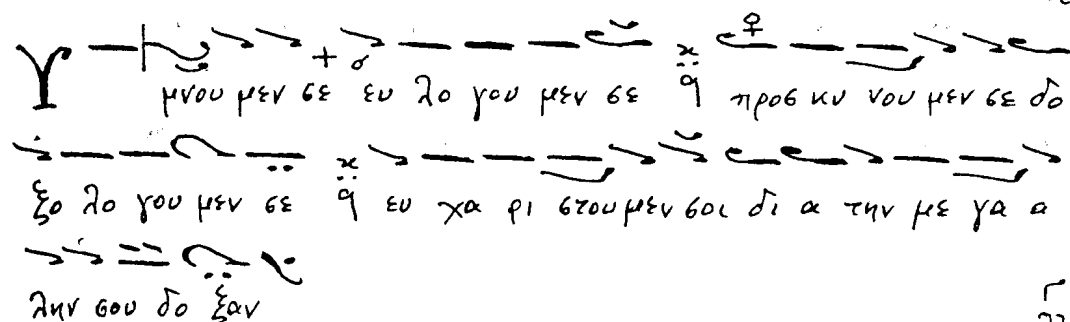 Υ μνου μεν σε ευ λο γου μεν σε προσ κυ νου μεν σε δο
ξο λο γου μεν σε ευ χα ρι στου μεν σοι δι α την με γα α
λην σου δο ξαν